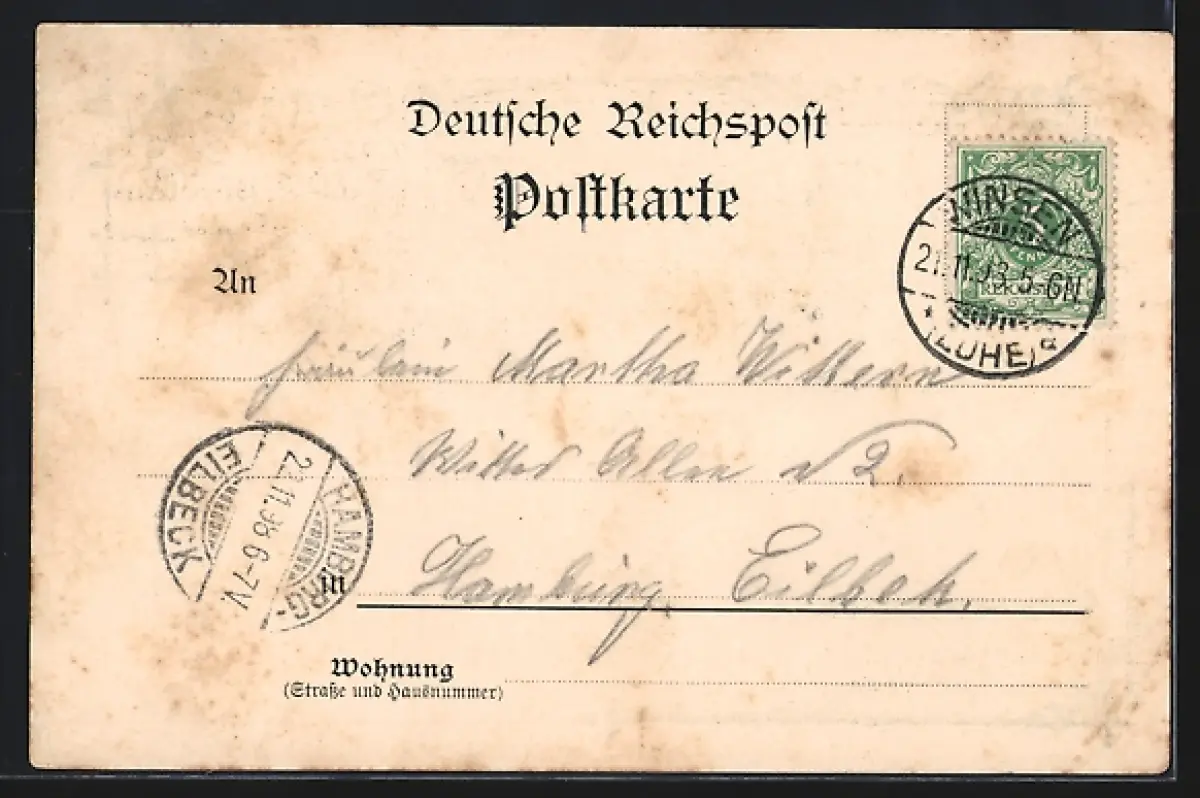 Deutsche Reichspost
Postkarte
WINSEN
21.11.98 5-6N
(LUHE) a
An
Fräulein Martha Wittern
Allee № 2.
in Hamburg, Eilbek.
HAMBURG-
11.98 6-7V
EILBECK
Wohnung
(Straße und Hausnummer)